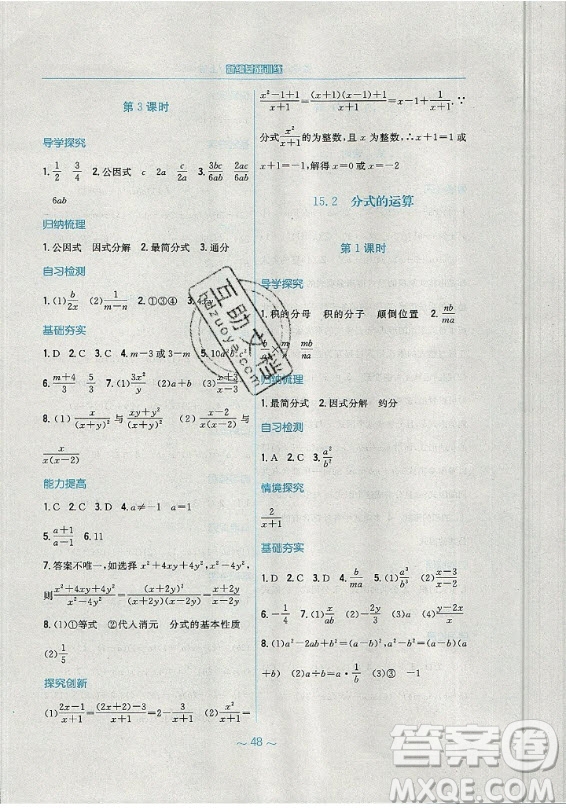 新编基础训练
第3课时
导学探究
1. 1/2 3/4 2. 公因式 c 2a c/2a 3. 3bc/6ab 2ac/6ab
6ab
归纳梳理
1. 公因式 因式分解 2. 最简分式 3. 通分
自习检测
1. (1) b/2x (2) 1/(m-n) 2. ①③④ 3.
基础夯实
1. D 2. C 3. C 4. m=3或m=-3
6. (m+4)/3 5/3 7. (1) 3x²/y (2) a+b
8. (1) x/(x+y)² 与 (xy+y²)/(x+y)²
x/(x(x-2))
能力提高
1. D 2. D 3. D 4. a≠-1 a=1
5. (a+1)/(a-1) 6. 11
7. 答案不唯一,如选择 x²+4xy+4y², x²-4y²,
则 (x²+4xy+4y²)/(x²-4y²) = (x+2y)²/((x+2y)(x-2y)) = (x+2y)/(x-2y)
8. (1)①等式 ②代入消元 分式的基本性质
(2) 1/5
探究创新
(1) (2x-1)/(x+1) = (2(x+1)-3)/(x+1) = 2-3/(x+1) (2) x²/(x+1) =
(x²-1+1)/(x+1) = ((x+1)(x-1)+1)/(x+1) = x-1+1/(x+1). ∵
分式 x²/(x+1) 的值为整数,且 x 为整数,∴
x+1=±1,解得 x=0 或 x=-2
15.2 分式的运算
第1课时
导学探究
1. 积的分母 积的分子 颠倒位置 2. nb/ma
mb/na
归纳梳理
1. 最简分式 2. 因式分解 约分
自习检测
1. A 2. C 3. a²/b²
情境探究
2/(x+1)
基础夯实
1. D 2. D 3. C 4. b/ma
6. -1/4 7.
8. (1) a²-2ab+b²=(a-b)², a²-b²=(a+b)(a-b) (2) a÷b=a·1/b (3)③ -1
～48～
互助文档
hdzuoye.com
答案圈
MXQE.COM